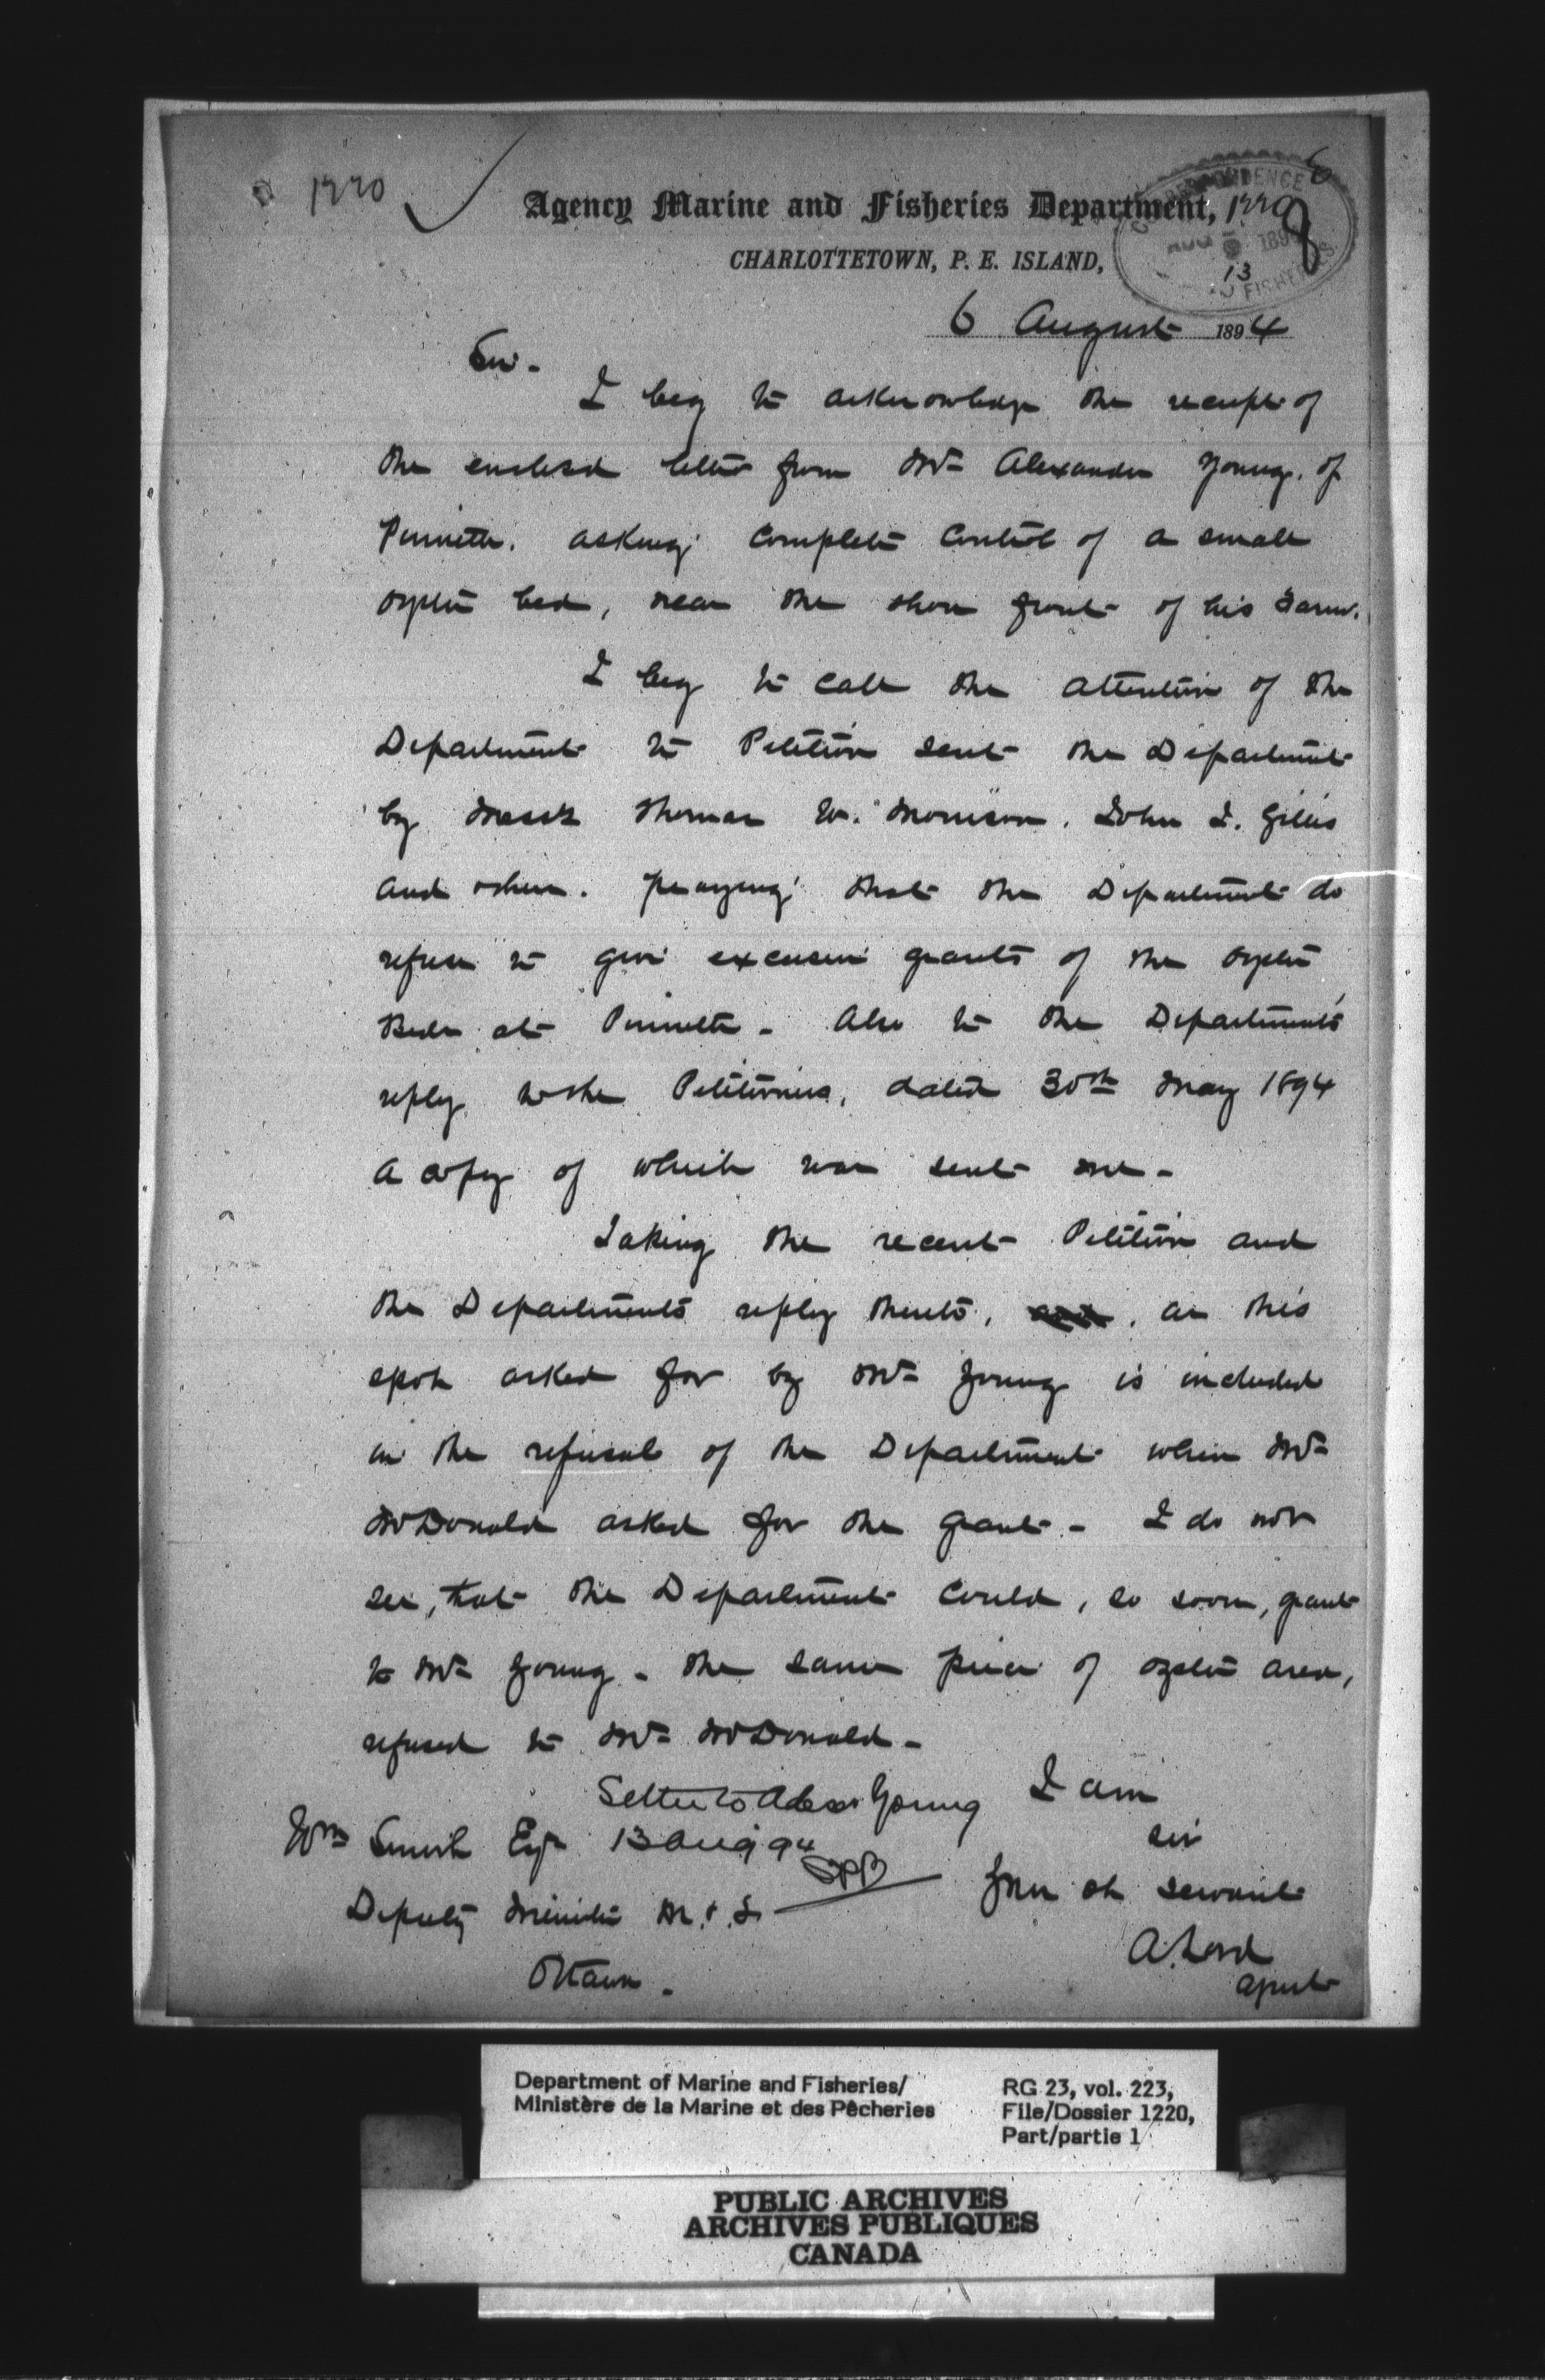 1220
6
Agency Marine and Fisheries Department, 1220
8
CORRESPONDENCE
AUG 1894
13
FISHERIES
CHARLOTTETOWN, P. E. ISLAND,
6 August 1894
Sir -
I beg to acknowledge the receipt of
the enclosed letter from Mr Alexander Young, of
Pinnette. asking complete control of a small
oyster bed, near the shore front of his Farm.
I beg to call the attention of the
Department to Petition sent the Department
by Messrs Thomas W. Morrison. John F. Gillis
and others. praying that the Department do
refuse to give excusive grants of the oyster
Beds at Pinnette - Also to the Department's
reply to the Petitioners, dated 30th May 1894
a copy of which was sent me -
Taking the recent Petition and
the Departments reply thereto, as this
spot asked for by Mr Young is included
in the refusal of the Department when Mr
McDonald asked for the grant - I do not
see, that the Department could, so soon, grant
to Mr Young - the same piece of oyster area,
refused to Mr McDonald -
Letter to Alexr Young I am
Wm Smith Esqr 13 Aug 94 Sir
SPB
Your ob servant
Deputy Minister M. & F.
A. Lord
Ottawa - Agent
Department of Marine and Fisheries/
Ministère de la Marine et des Pêcheries
RG 23, vol. 223,
File/Dossier 1220,
Part/partie 1
PUBLIC ARCHIVES
ARCHIVES PUBLIQUES
CANADA